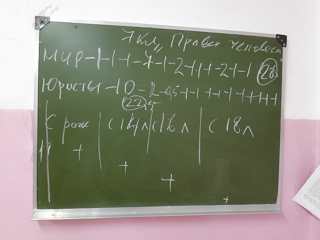 7 кл, Права человека
МИР-1-1-1-7-1-2-1-1-2-1-1 28
Юристы-10-2-0,5-1-1-1-1-1-1-1-1
22,5
С рожд | С 14 л | С 16 л | С 18 л
+
+
+
+